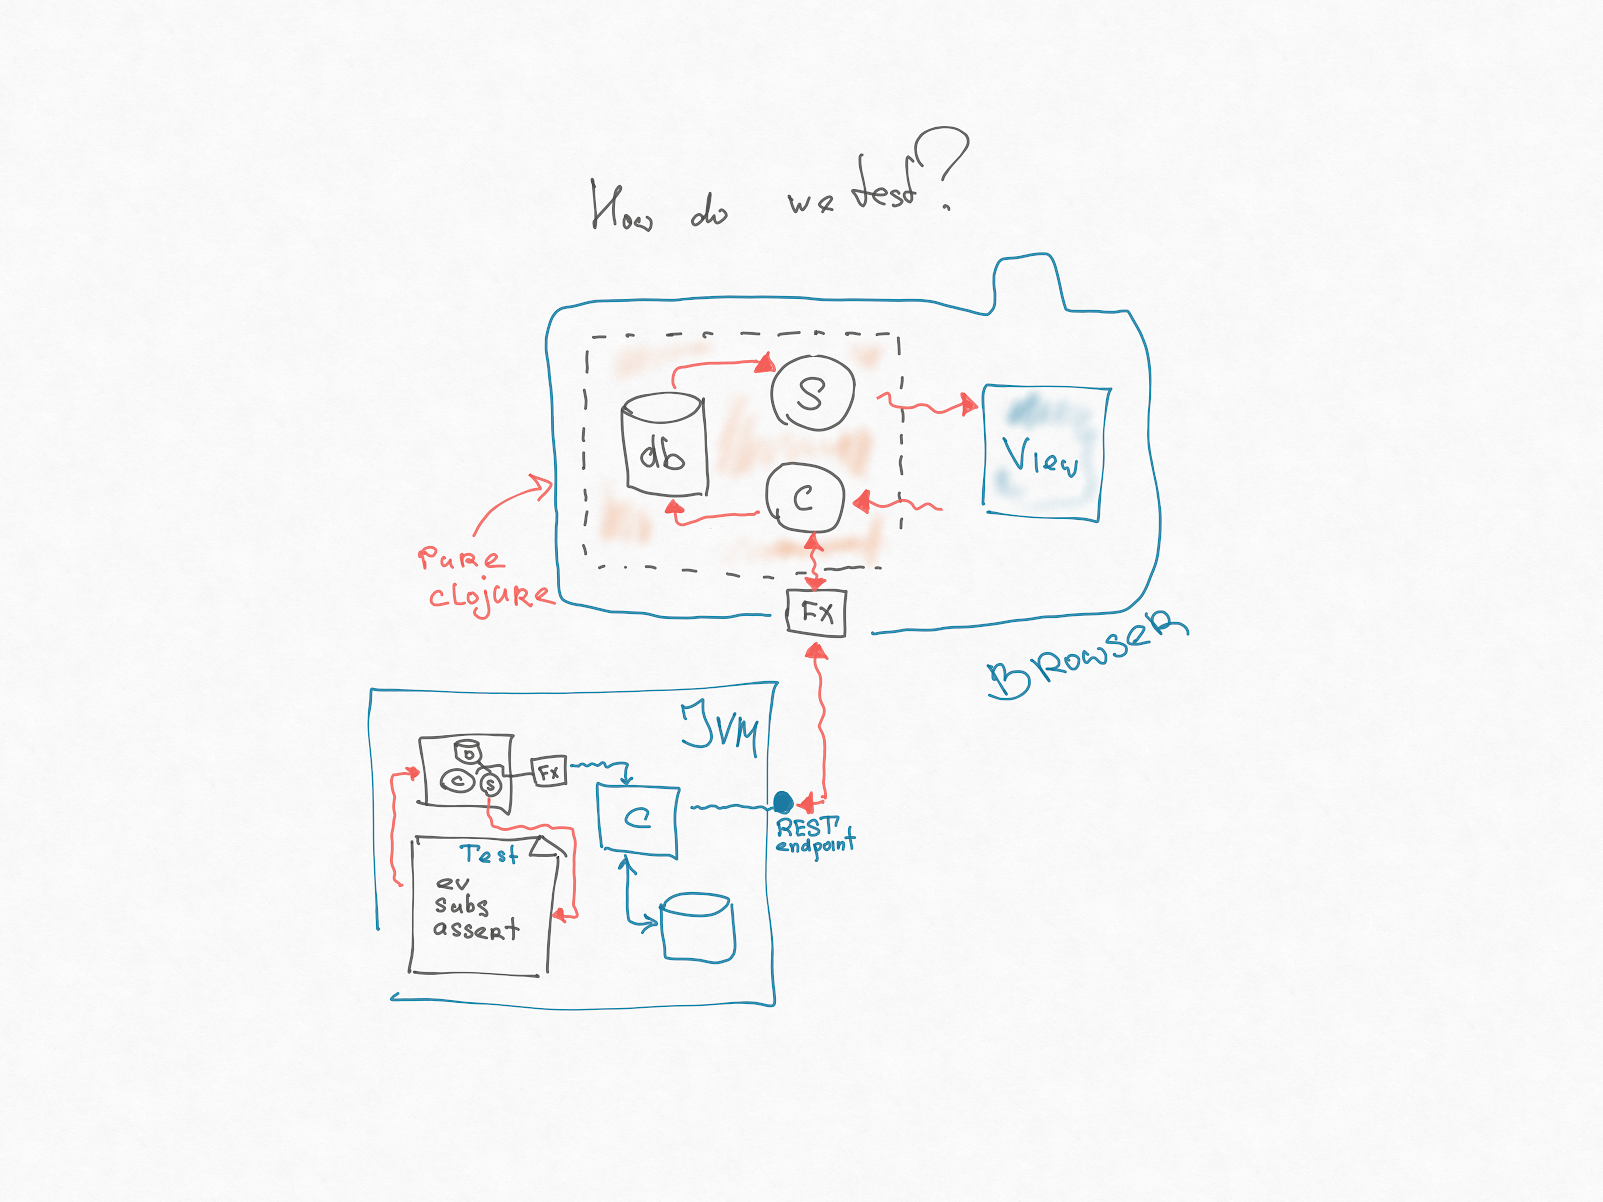 How do we test?
S
db
View
C
Pure
clojure
FX
Browser
JVM
D
C
S
Fx
C
REST
endpoint
Test
ev
subs
assert